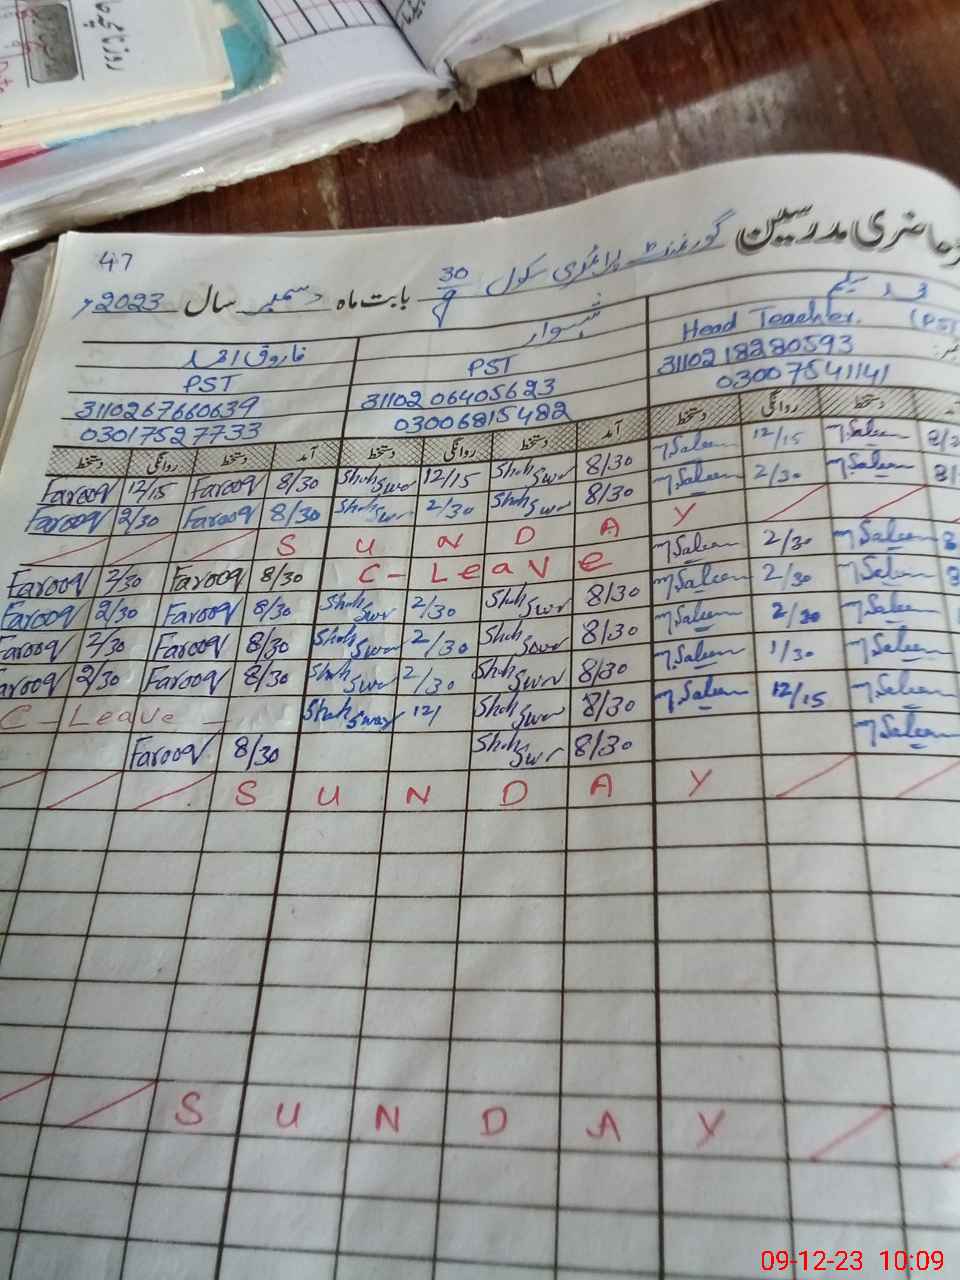 47
حاضری مدرسین گورنمنٹ پرائمری سکول 30/9 بابت ماہ دسمبر سال 2023ء
فاروق احمد شہوار محمد سلیم
PST PST Head Teachter. (PST)
3110267660639 3110206405623 3110218280593
03017527733 03006815482 03007541141
دستخط روانگی دستخط آمد دستخط روانگی دستخط آمد دستخط روانگی دستخط
Farooq 12/15 Farooq 8/30 Shah Swar 12/15 Shah Swar 8/30 M Saleem 12/15 M Saleem
Farooq 2/30 Farooq 8/30 Shah Swar 2/30 Shah Swar 8/30 M Saleem 2/30 M Saleem
S U N D A Y
Farooq 2/30 Farooq 8/30 C - Leave M Saleem 2/30 M Saleem
Farooq 2/30 Farooq 8/30 Shah Swar 2/30 Shah Swar 8/30 M Saleem 2/30 M Saleem
Farooq 2/30 Farooq 8/30 Shah Swar 2/30 Shah Swar 8/30 M Saleem 2/30 M Saleem
Farooq 2/30 Farooq 8/30 Shah Swar 2/30 Shah Swar 8/30 M Saleem 1/30 M Saleem
C - Leave - Shah Swar 12/ Shah Swar 8/30 M Saleem 12/15 M Saleem
Farooq 8/30 Shah Swar 8/30 M Saleem
S U N D A Y
S U N D A Y
09-12-23 10:09